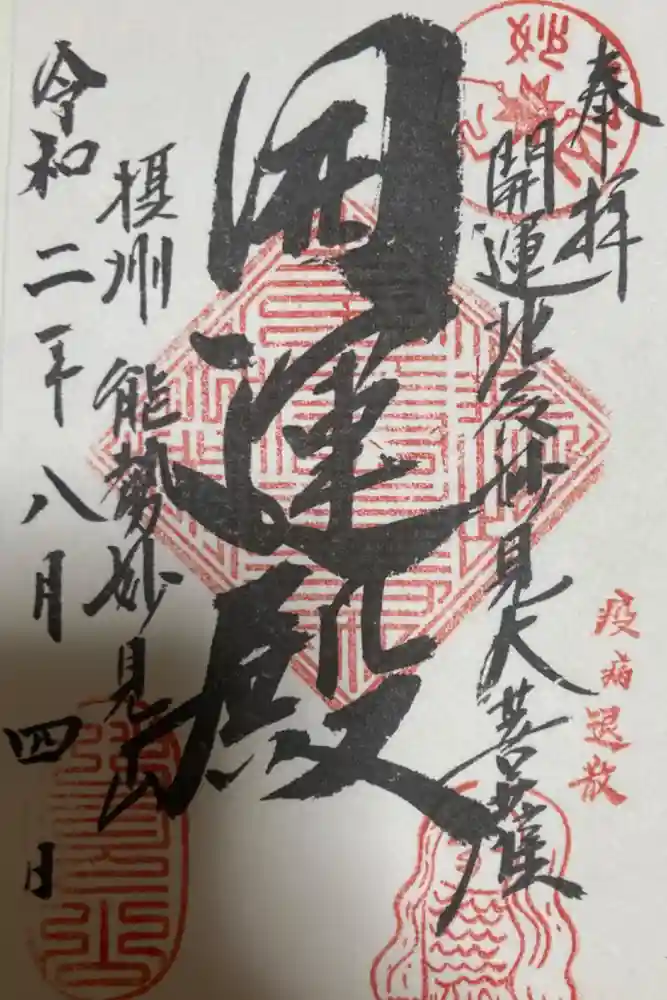 奉拝
開運北辰妙見大菩薩
疫病退散
開運殿
摂州 能勢妙見山
令和二年八月四日
妙